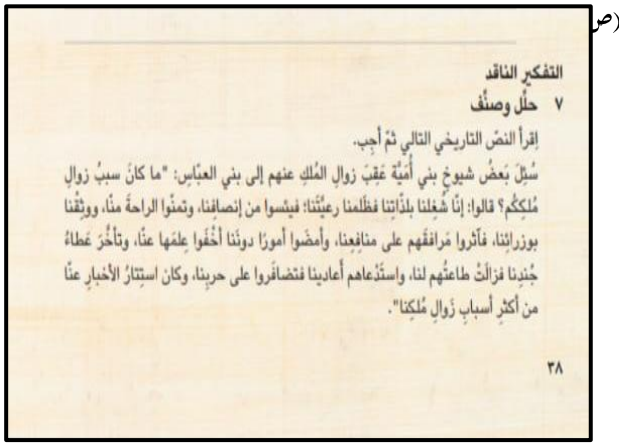 (ص
التفكير الناقد
٧ حلّل وصنّف
اِقرأ النصّ التاريخي التالي ثمّ أجِب.
سُئِلَ بَعضُ شيوخِ بني أُمَيَّة عَقِبَ زوالِ المُلكِ عنهم إلى بني العبّاسِ: "ما كانَ سببُ زوالِ
مُلكِكُم؟ قالوا: إنّا شُغِلنا بلذّاتِنا فظَلمنا رعيَّتَنا؛ فيئسوا من إنصافِنا، وتمنَّوا الراحةَ منّا، ووثِقْنا
بوزرائِنا، فآثروا مَرافقَهم على منافِعِنا، وأمضَوا أمورًا دونَنا أخْفَوا عِلمَها عنّا، وتأخَّرَ عَطاءُ
جُندِنا فزالَتْ طاعتُهم لنا، واستَدْعاهم أعادينا فتضافَروا على حربِنا، وكان استِتارُ الأخبارِ عنّا
من أكثرِ أسبابِ زَوالِ مُلكِنا".
٣٨